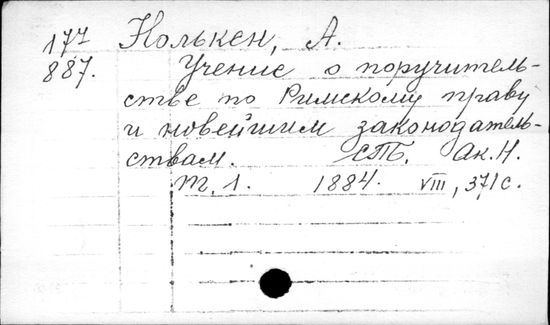 177 Нолькен, А.
887. Учение о поручитель-
стве по Римскому праву
и новейшим законодатель-
ствам. СПб. Ак.Н.
Т. 1. 1884. VIII, 371 с.